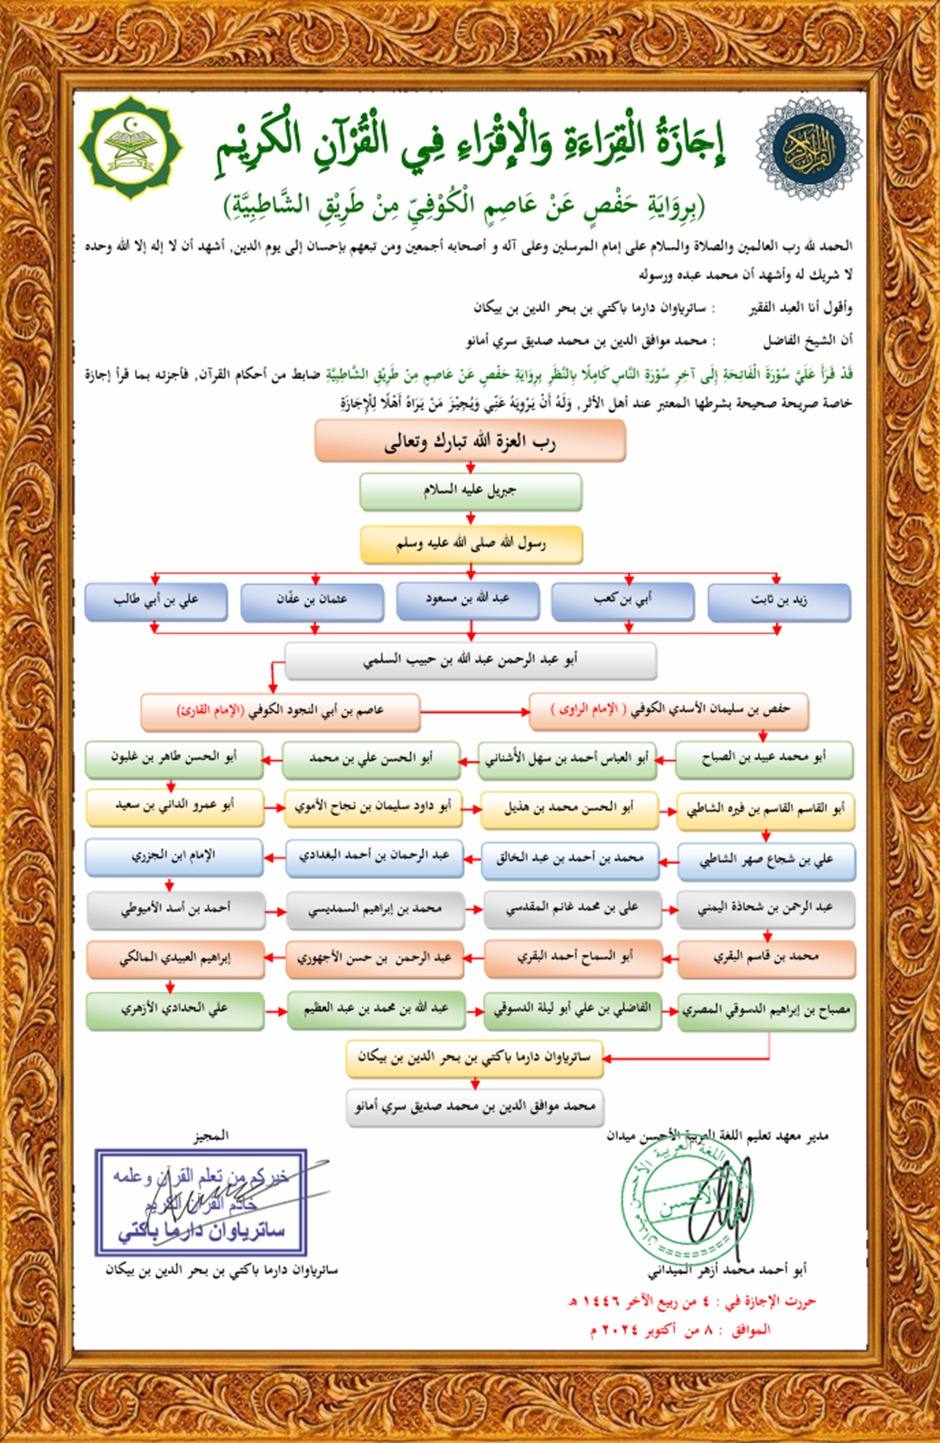 إِجَازَةُ الْقِرَاءَةِ وَالْإِقْرَاءِ فِي الْقُرْآنِ الْكَرِيْمِ
(بِرِوَايَةِ حَفْصٍ عَنْ عَاصِمٍ الْكُوْفِيِّ مِنْ طَرِيْقِ الشَّاطِبِيَّةِ)
الحمد لله رب العالمين والصلاة والسلام على إمام المرسلين وعلى آله و أصحابه أجمعين ومن تبعهم بإحسان إلى يوم الدين, أشهد أن لا إله إلا الله وحده
لا شريك له وأشهد أن محمد عبده ورسوله
وأقول أنا العبد الفقير : ساترياوان دارما باكتي بن بحر الدين بن بيكان
أن الشيخ الفاضل : محمد موافق الدين بن محمد صديق سري أمانو
قَدْ قَرَأَ عَلَيَّ سُوْرَةَ الْفَاتِحَةِ إِلَى آخِرِ سُوْرَةِ النَّاسِ كَامِلًا بِالنَّظَرِ بِرِوَايَةِ حَفْصٍ عَنْ عَاصِمٍ مِنْ طَرِيْقِ الشَّاطِبِيَّةِ ضابط من أحكام القرآن, فأجزته بما قرأ إجازة
خاصة صريحة صحيحة بشرطها المعتبر عند أهل الأثر, وَلَهُ أَنْ يَرْوِيَهُ عَنِّي وَيُجِيْزَ مَنْ يَرَاهُ أَهْلًا لِلْإِجَازَةِ
رب العزة الله تبارك وتعالى
جبريل عليه السلام
رسول الله صلى الله عليه وسلم
زيد بن ثابت
أبي بن كعب
عبد الله بن مسعود
عثمان بن عفّان
علي بن أبي طالب
أبو عبد الرحمن عبد الله بن حبيب السلمي
حفص بن سليمان الأسدي الكوفي ( الإمام الراوى )
عاصم بن أبي النجود الكوفي (الإمام القارئ)
أبو محمد عبيد بن الصباح
أبو العباس أحمد بن سهل الأُشناني
أبو الحسن علي بن محمد
أبو الحسن طاهر بن غلبون
أبو القاسم القاسم بن فيره الشاطبي
أبو الحسن محمد بن هذيل
أبو داود سليمان بن نجاح الأموي
أبو عمرو الداني بن سعيد
علي بن شجاع صهر الشاطبي
محمد بن أحمد بن عبد الخالق
عبد الرحمان بن أحمد البغدادي
الإمام ابن الجزري
عبد الرحمن بن شحاذة اليمني
على بن محمد غانم المقدسي
محمد بن إبراهيم السمديسي
أحمد بن أسد الأميوطي
محمد بن قاسم البقري
أبو السماح أحمد البقري
عبد الرحمن بن حسن الأجهوري
إبراهيم العبيدي المالكي
مصباح بن إبراهيم الدسوقي المصري
الفاضلي بن علي أبو ليلة الدسوقي
عبد الله بن محمد بن عبد العظيم
علي الحدادي الأزهري
ساترياوان دارما باكتي بن بحر الدين بن بيكان
محمد موافق الدين بن محمد صديق سري أمانو
مدير معهد تعليم اللغة العربية الأحسن ميدان
المجيز
اللغة العربية الأحسن ميدان
الأحسن
خيركم من تعلم القرآن وعلمه
خادم القرآن الكريم
ساترياوان دارما باكتي
أبو أحمد محمد أزهر الميداني
ساترياوان دارما باكتي بن بحر الدين بن بيكان
حررت الإجازة في : ٤ من ربيع الآخر ١٤٤٦ هـ
الموافق : ٨ من أكتوبر ٢٠٢٤ م